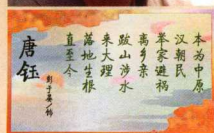 本为中原
汉朝民
举家避祸
离乡亲
跋山涉水
来大理
落地生根
直至今
唐钰